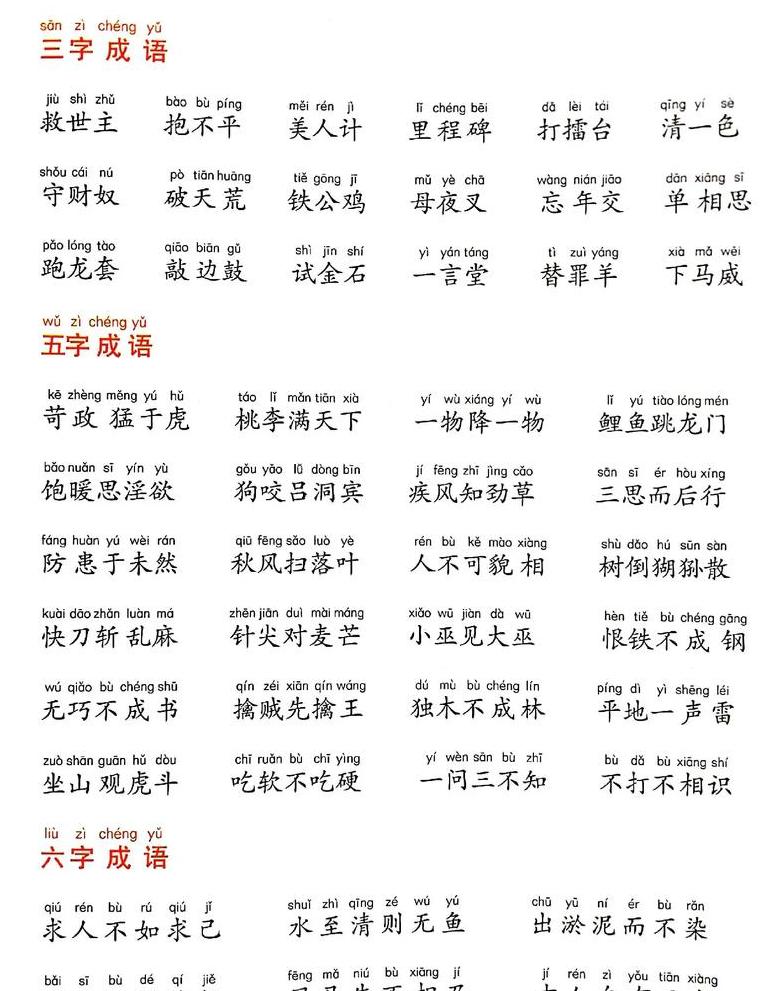 sān zì chéng yǔ
三字成语
jiù shì zhǔ bào bù píng měi rén jì lǐ chéng bēi dǎ lèi tái qīng yí sè
救世主 抱不平 美人计 里程碑 打擂台 清一色
shǒu cái nú pò tiān huāng tiě gōng jī mǔ yè chā wàng nián jiāo dān xiāng sī
守财奴 破天荒 铁公鸡 母夜叉 忘年交 单相思
pǎo lóng tào qiāo biān gǔ shì jīn shí yì yán táng tì zuì yáng xià mǎ wēi
跑龙套 敲边鼓 试金石 一言堂 替罪羊 下马威
wǔ zì chéng yǔ
五字成语
kē zhèng měng yú hǔ táo lǐ mǎn tiān xià yí wù xiáng yí wù lǐ yú tiào lóng mén
苛政猛于虎 桃李满天下 一物降一物 鲤鱼跳龙门
bǎo nuǎn sī yín yù gǒu yǎo lǚ dòng bīn jí fēng zhī jìng cǎo sān sī ér hòu xíng
饱暖思淫欲 狗咬吕洞宾 疾风知劲草 三思而后行
fáng huàn yú wèi rán qiū fēng sǎo luò yè rén bù kě mào xiàng shù dǎo hú sūn sàn
防患于未然 秋风扫落叶 人不可貌相 树倒猢狲散
kuài dāo zhǎn luàn má zhēn jiān duì mài máng xiǎo wū jiàn dà wū hèn tiě bù chéng gāng
快刀斩乱麻 针尖对麦芒 小巫见大巫 恨铁不成钢
wú qiǎo bù chéng shū qín zéi xiān qín wáng dú mù bù chéng lín píng dì yì shēng léi
无巧不成书 擒贼先擒王 独木不成林 平地一声雷
zuò shān guān hǔ dòu chī ruǎn bù chī yìng yí wèn sān bù zhī bù dǎ bù xiāng shí
坐山观虎斗 吃软不吃硬 一问三不知 不打不相识
liù zì chéng yǔ
六字成语
qiú rén bù rú qiú jǐ shuǐ zhì qīng zé wú yú chū yū ní ér bù rǎn
求人不如求己 水至清则无鱼 出淤泥而不染
bǎi sī bù dé qí jiě fēng mǎ niú bù xiāng jí jí rén zì yǒu tiān xiàng